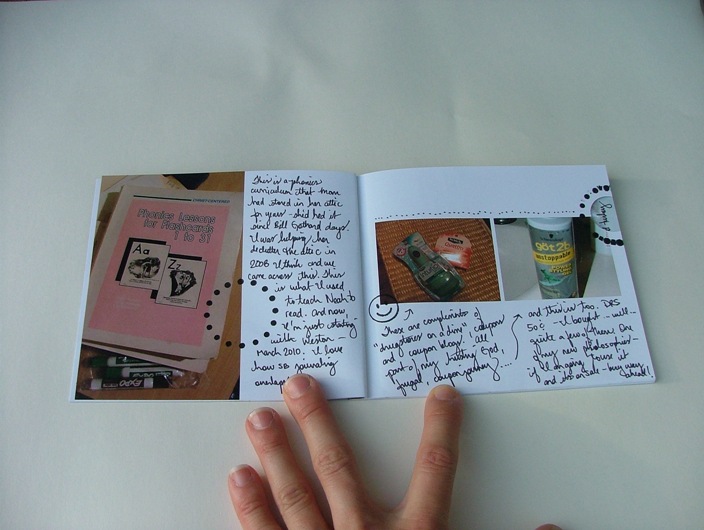 Phonics Lessons
for Flashcards
1 to 31
Aa
Zz
This is a phonics
curriculum that mom
had stored in her attic
for years - she'd had it
since Bill Gothard days.
I was helping her
declutter the attic in
2008 I think and we
came across this. This
is what I used
to teach Noah to
read. and now,
I'm just starting
with Weston -
March 2010. I love
how SB journaling
overlaps
These are compliments of
"drugstores on a dime", coupons
and coupon blogs, all
part of my hitting
frugal, coupon
and this is too. DRS
50¢ - I bought... well...
quite a few of them. One
of my new philosophies -
if I'm going to use it
and it's on sale - buy way
ahead!
got2b
unstoppable